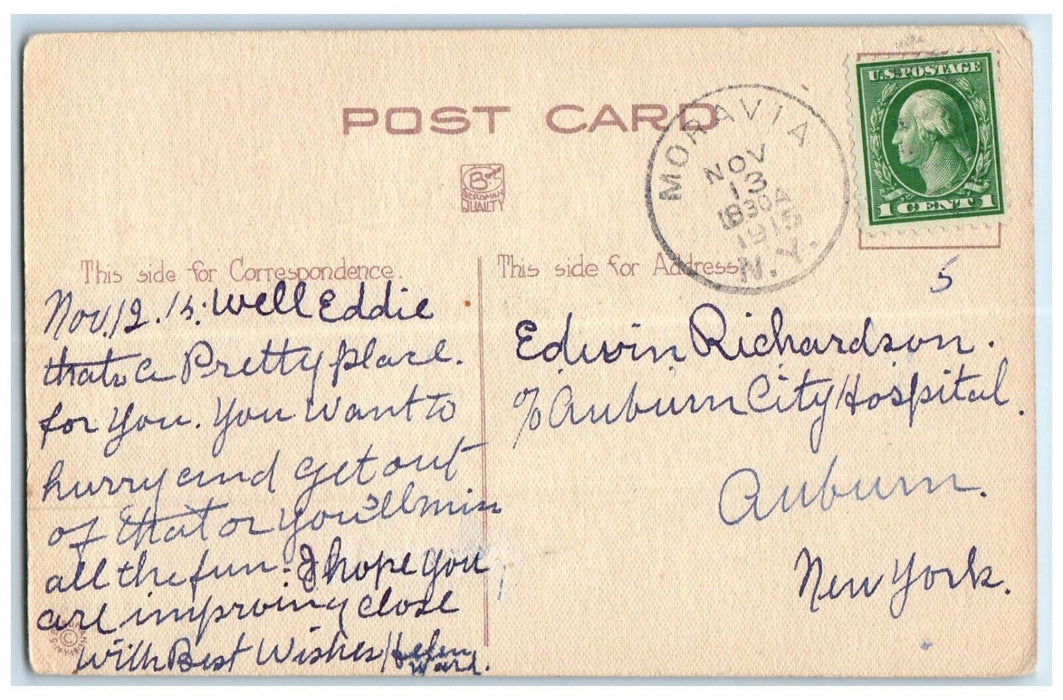 U.S. POSTAGE
1 CENT 1
POST CARD
MORAVIA
NOV
13
830A
1915
N.Y.
B
BERGMAN
QUALITY
This side for Correspondence.
This side for Address
5
Nov. 12. 15. Well Eddie
thats a Pretty place.
for you. You want to
hurry and get out
of that or you'll miss
all the fun. I hope you
are improving close
with Best Wishes Helen
Ward.
Edwin Richardson.
% Auburn City Hospital.
Auburn.
New York.
©